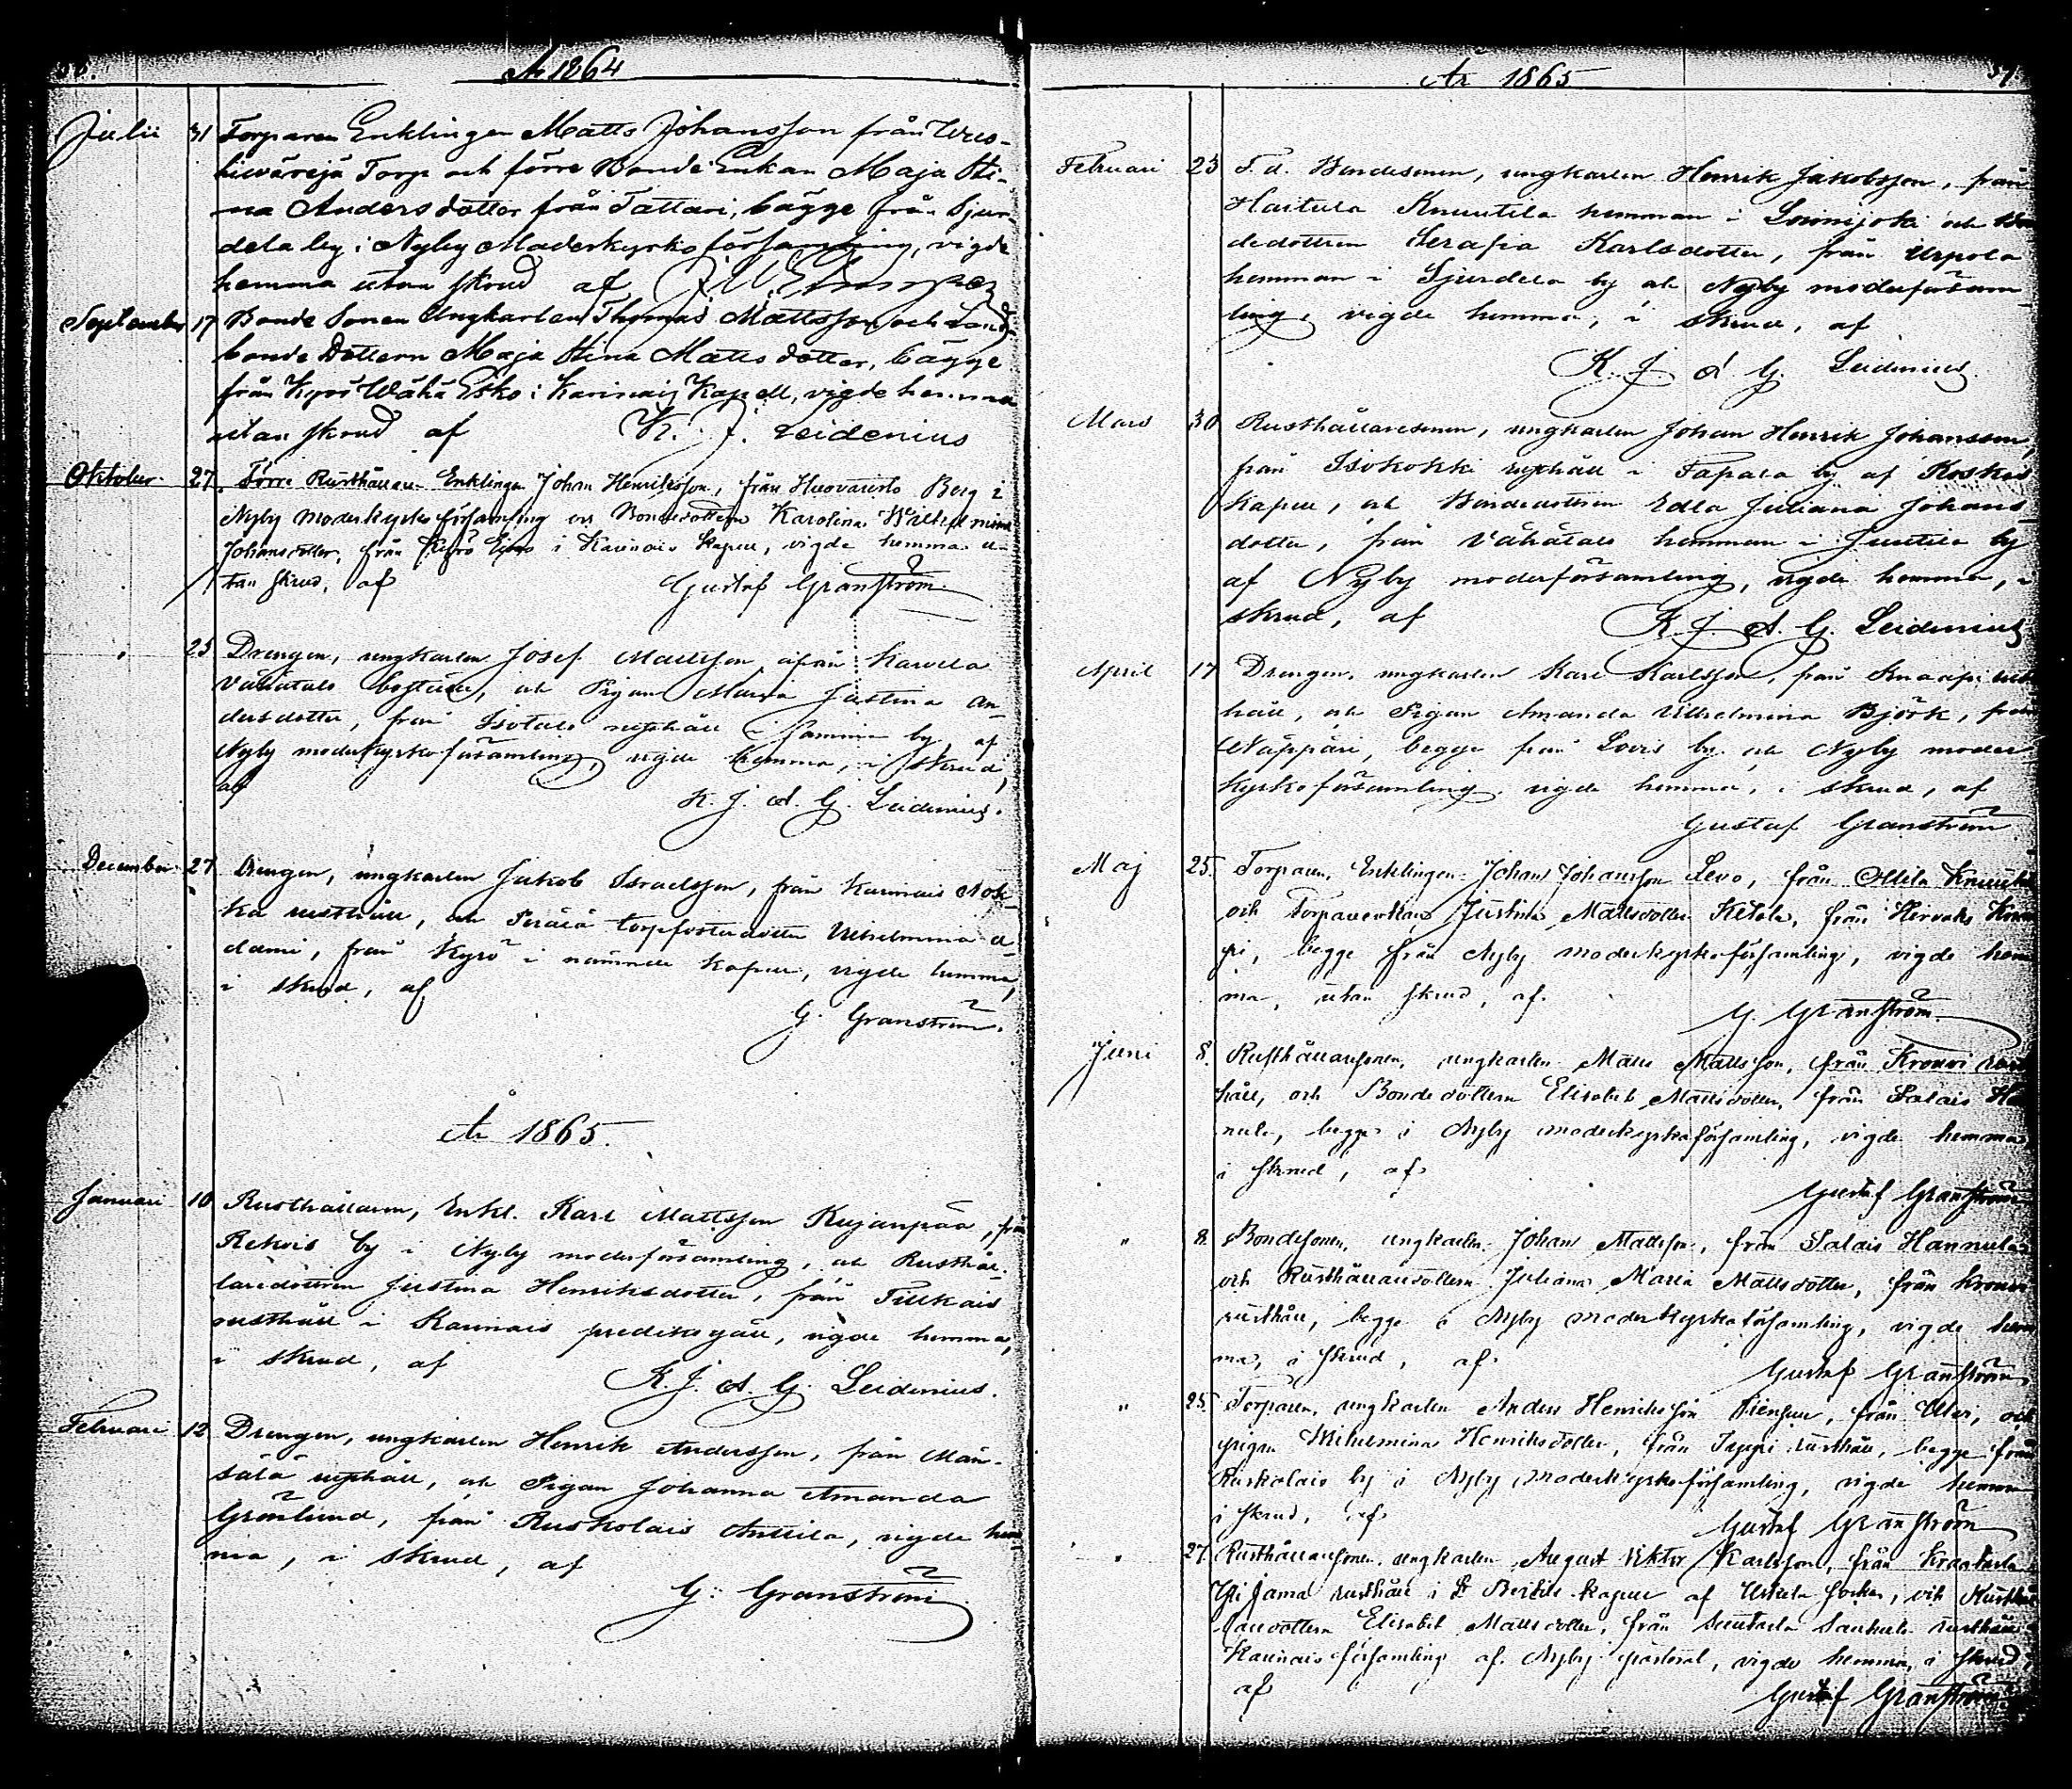 År 1864
Julii 31 Torparen Enklingen Matts Johansson från
Torp och förre Bonde Enkan Maja Sti-
na Andersdotter från Tattari, bägge från Sjur-
dela by i Nyby Moderkyrko församling, vigde
hemma utan skrud af
September 17 Bonde Sonen Ungkarlen Thomas Mattsson och Land-
bonde Dottern Maja Stina Mattsdotter, bägge
från Kyrö Wähä Esko i Karinais Kapell, vigde hemma
utan skrud af K. J. Leidenius
Oktober 27. Förre Rusthållaren Enklingen Johan Henriksson, från Berg i
Nyby Moderkyrko församling och Bondedottern Karolina Wilhelmina
Johansdotter, från Kyrö i Karinais Kapell, vigde hemma u-
tan skrud, af Gustaf Granström
" 25 Drengen, ungkarlen Josef Mattsson, ifrån
och Pigan Maria Justina An-
dersdotter, från Isotalo rusthåll i by af
Nyby moderkyrkoförsamling, vigde hemma, i skrud,
af
K. J. A. G. Leidenius.
December 27 Drengen, ungkarlen Jakob Israelsson, från Karinais Nok-
ka rusthåll, och Perälä torpfosterdotter Vilhelmina A-
dami, från Kyrö i nämnde kapell, vigde hemma,
i skrud, af
G. Granström.
År 1865.
Januari 10 Rusthållaren, Enkl. Karl Mattsson Kujanpää, från
Rekois by i Nyby moderförsamling, och Rusthål-
laredottren Justina Henriksdotter, från Tillkais
rusthåll i Karinais predikogäll, vigde hemma,
i skrud, af
K. J. A. G. Leidenius.
Februari 12 Drengen, ungkarlen Henrik Andersson, från Män-
sälä rusthåll, och Pigan Johanna Amanda
Grönlund, från Ruskolais Anttila, vigde hem-
ma, i skrud, af
G. Granström
År 1865
Februari 23 F.d. Bondesonen, ungkarlen Henrik Jakobsson, från
Knuutila hemman i Loimijoki och Bon-
dedottren Serafia Karlsdotter, från Uspola
hemman i Sjurdela by af Nyby moderförsam-
ling, vigde hemma, i skrud, af
K. J. A. G. Leidenius.
Mars 30 Rusthållaresonen, ungkarlen Johan Henrik Johansson,
från Isokokki rusthåll i Tapala by af Koskis
kapell, och Bondedottren Edla Juliana Johans-
dotter, från Vähätalo hemman i Juntila by
af Nyby moderförsamling, vigde hemma, i
skrud, af K. J. A. G. Leidenius
April 17 Drengen, ungkarlen Karl Karlsson, från Knaapi rust-
håll, och Pigan Amanda Vilhelmina Björk, från
Näppäri, begge från Lovis by och Nyby moder
kyrkoförsamling, vigde hemma, i skrud, af
Gustaf Granström
Maj 25. Torparen, Enklingen Johan Johansson Levo, från Ollila
och Torpareenkan Justina Mattsdotter Ketola, från
pi, begge från Nyby moderkyrko-församling, vigde hem-
ma, utan skrud, af.
G. Granström
Juni 8. Rusthållaresonen, ungkarlen Matts Mattsson, från Krouvi rust-
håll, och Bondedottern Elisabet Mattsdotter, från Salais Han-
nula, begge i Nyby moderkyrkoförsamling, vigde hemma
i skrud, af
Gustaf Granström
" 8. Bondesonen, ungkarlen Johan Mattsson, från Salais Hannula
och Rusthållaredottern Juliana Maria Mattsdotter, från Krouvi
rusthåll, begge i Nyby moderkyrkoförsamling, vigde hem-
ma, i skrud, af
Gustaf Granström
" 25. Torparen, ungkarlen Anders Henriksson från och
pigan Wilhelmina Henriksdotter, från Seppä rusthåll, begge från
Ruskolais by i Nyby moderkyrkoförsamling, vigde hemma
i skrud, af
Gustaf Granström
" 27. Rusthållaresonen, ungkarlen August Viktor Karlsson, från
Yli Jama rusthåll i St Bertils kapell af Uskela socken, och Rusthål-
laredottern Elisabet Mattsdotter, från rusthåll i
Karinais församling af Nyby pastorat, vigde hemma, i skrud,
af
Gustaf Granström